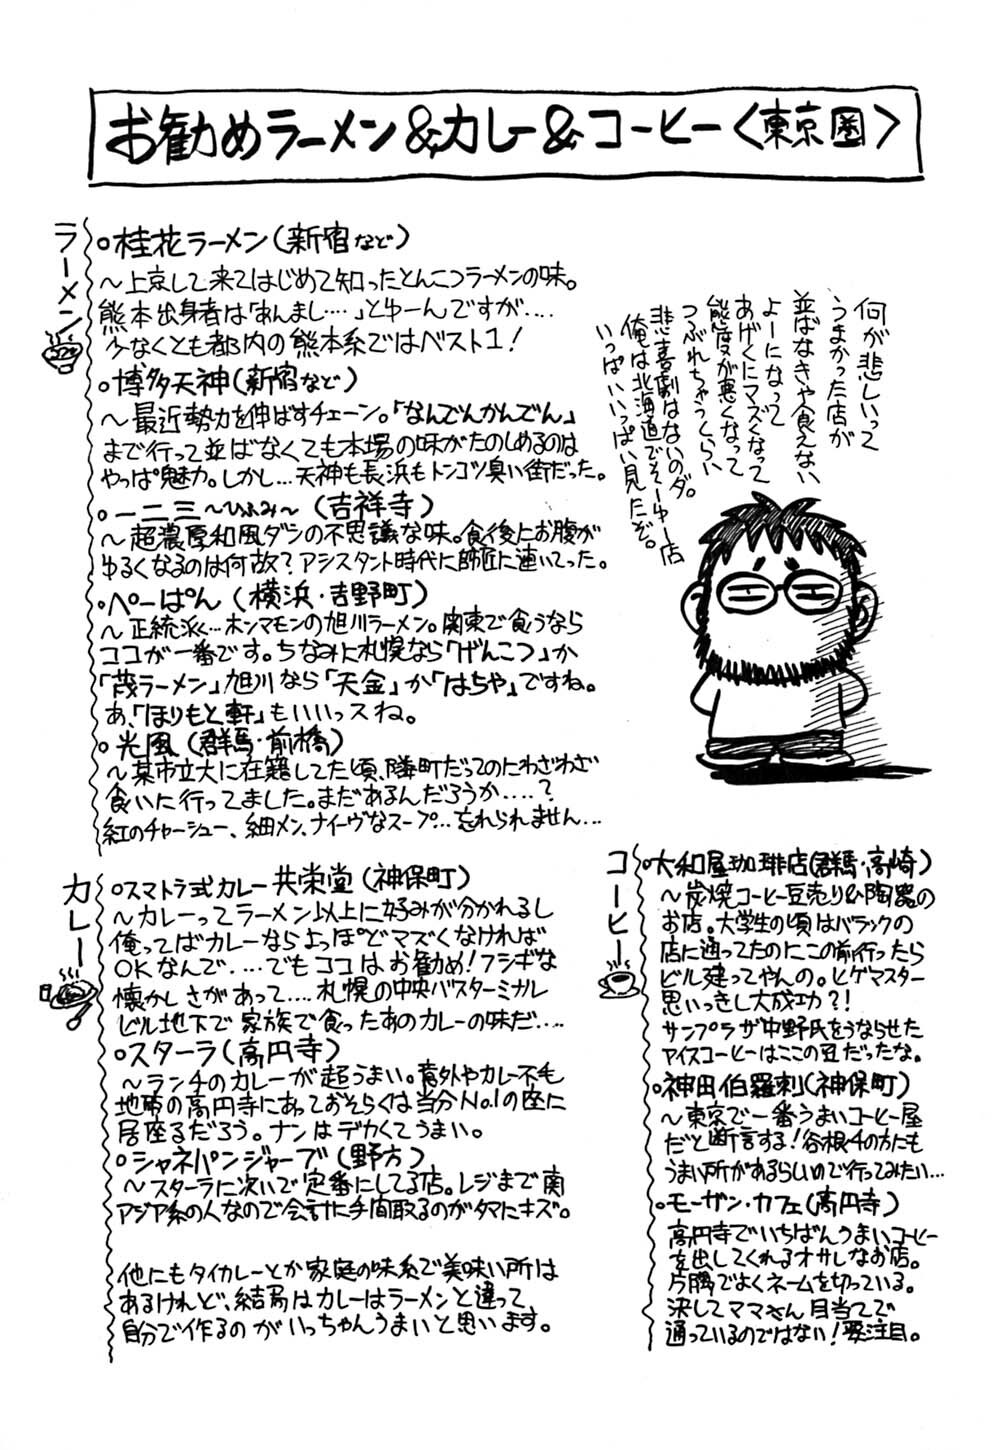 お勧めラーメン&カレー&コーヒー〈東京圏〉
ラーメン
○桂花ラーメン(新宿など)
〜上京して来てはじめて知ったとんこつラーメンの味。
熊本出身者は「あんまし‥‥」とゆーんですが‥‥
少なくとも都内の熊本系ではベスト1!
○博多天神(新宿など)
〜最近勢力を伸ばすチェーン。「なんでんかんでん」
まで行って並ばなくても本場の味がたのしめるのは
やっぱ魅力。しかし…天神も長浜もトンコツ臭い街だった。
○一二三〜ひふみ〜(吉祥寺)
〜超濃厚和風ダシの不思議な味。食後にお腹が
ゆるくなるのは何故?アシスタント時代に師匠に連いてった。
○ぺーぱん(横浜・吉野町)
〜正統派く…ホンマモンの旭川ラーメン。関東で食うなら
ココが一番です。ちなみに札幌なら「げんこつ」か
「茂ラーメン」旭川なら「天金」か「はちや」ですね。
あ、「ほりもと軒」もいいっスね。
○光風(群馬・前橋)
〜某市立大に在籍してた頃、隣町だってのにわざわざ
食いに行ってました。まだあるんだろうか‥‥?
紅のチャーシュー、細メン、ナイーヴなスープ…忘れられません…
何が悲しいって
うまかった店が
並ばなきゃ食えない
よーになって
あげくにマズくなって
態度が悪くなって
つぶれちゃうくらい
悲喜劇はないのダ。
俺は北海道でそーゆー店
いっぱいいっぱい見たぞ。
カレー
○スマトラ式カレー共栄堂(神保町)
〜カレーってラーメン以上に好みが分かれるし
俺ってばカレーならよっぽどマズくなければ
OKなんで‥‥でもココはお勧め!フシギな
懐かしさがあって‥‥札幌の中央バスターミナル
ビル地下で家族で食ったあのカレーの味だ‥‥
○スターラ(高円寺)
〜ランチのカレーが超うまい。意外やカレー不毛
地帯の高円寺にあっておそらくは当分No.1の座に
居座るだろう。ナンはデカくてうまい。
○シャネパンジャーブ(野方)
〜スターラに次いで定番にしてる店。レジまで南
アジア系の人なので会計に手間取るのがタマにキズ。
他にもタイカレーとか家庭の味系で美味い所は
あるけれど、結局はカレーはラーメンと違って
自分で作るのがいっちゃんうまいと思います。
コーヒー
○大和屋珈琲店(群馬・高崎)
〜炭焼コーヒー豆売り&陶器の
お店。大学生の頃はバラックの
店に通ってたのにこの前行ったら
ビル建ってやんの。ヒゲマスター
思いっきし大成功?!
サンプラザ中野氏をうならせた
アイスコーヒーはここの豆だったな。
○神田伯羅刺(神保町)
〜東京で一番うまいコーヒー屋
だと断言する!谷根千の方にも
うまい所があるらしいので行ってみたい…
○モーザン・カフェ(高円寺)
高円寺でいちばんうまいコーヒー
を出してくれるオサレなお店。
片隅でよくネームを切っている。
決してママさん目当てで
通っているのではない!要注目。